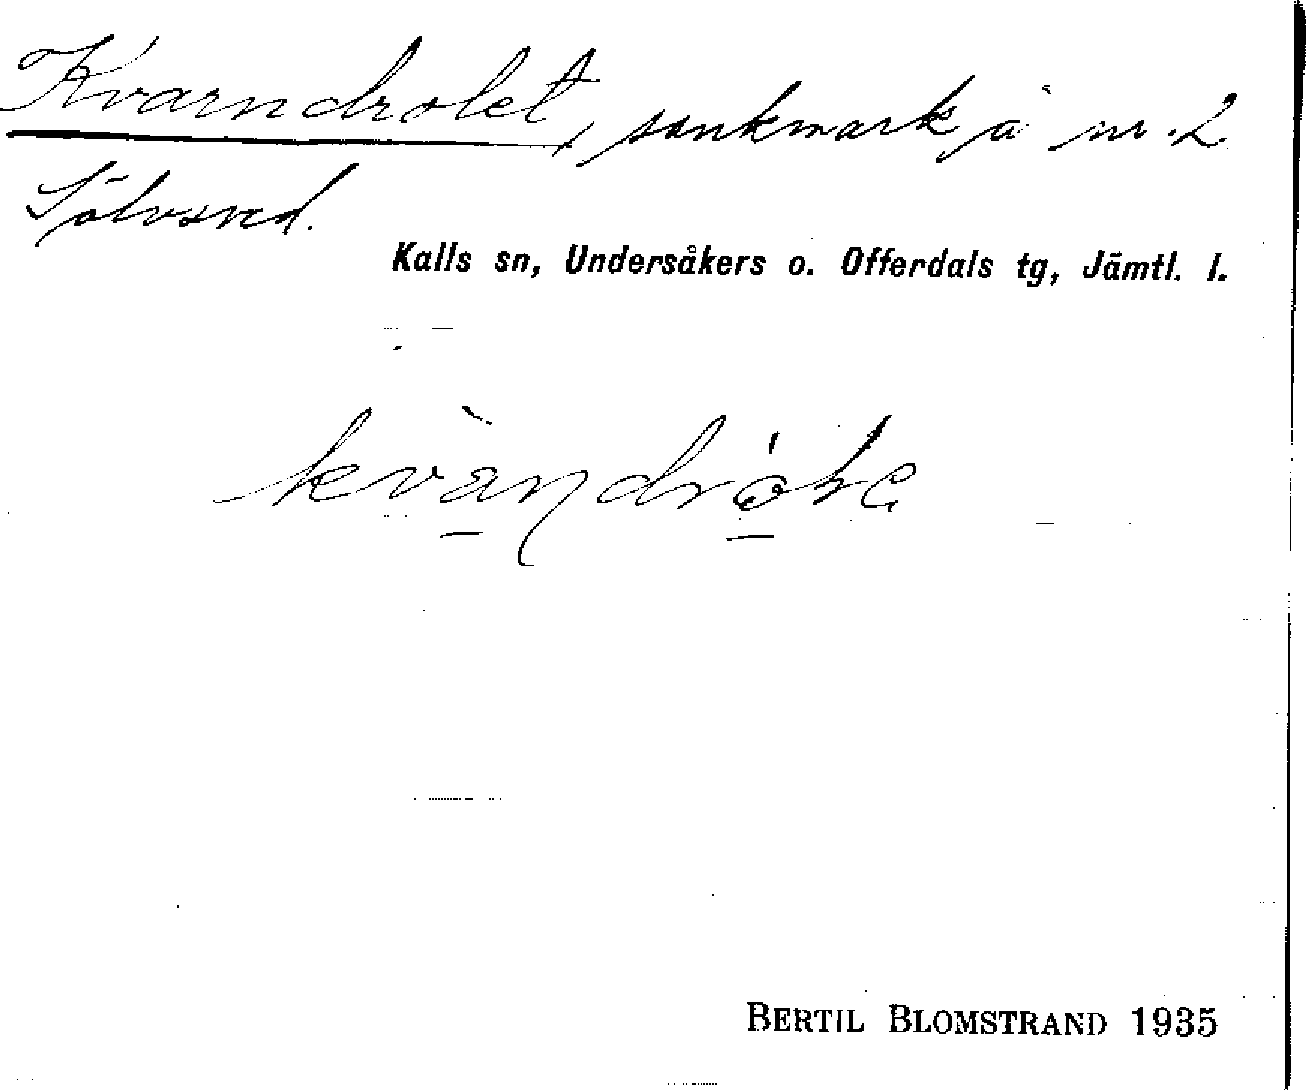 Kvarndrolet, sankmark å nr. 2
Sölvsved.
Kalls sn, Undersåkers o. Offerdals tg, Jämtl. l.
BERTIL BLOMSTRAND 1935